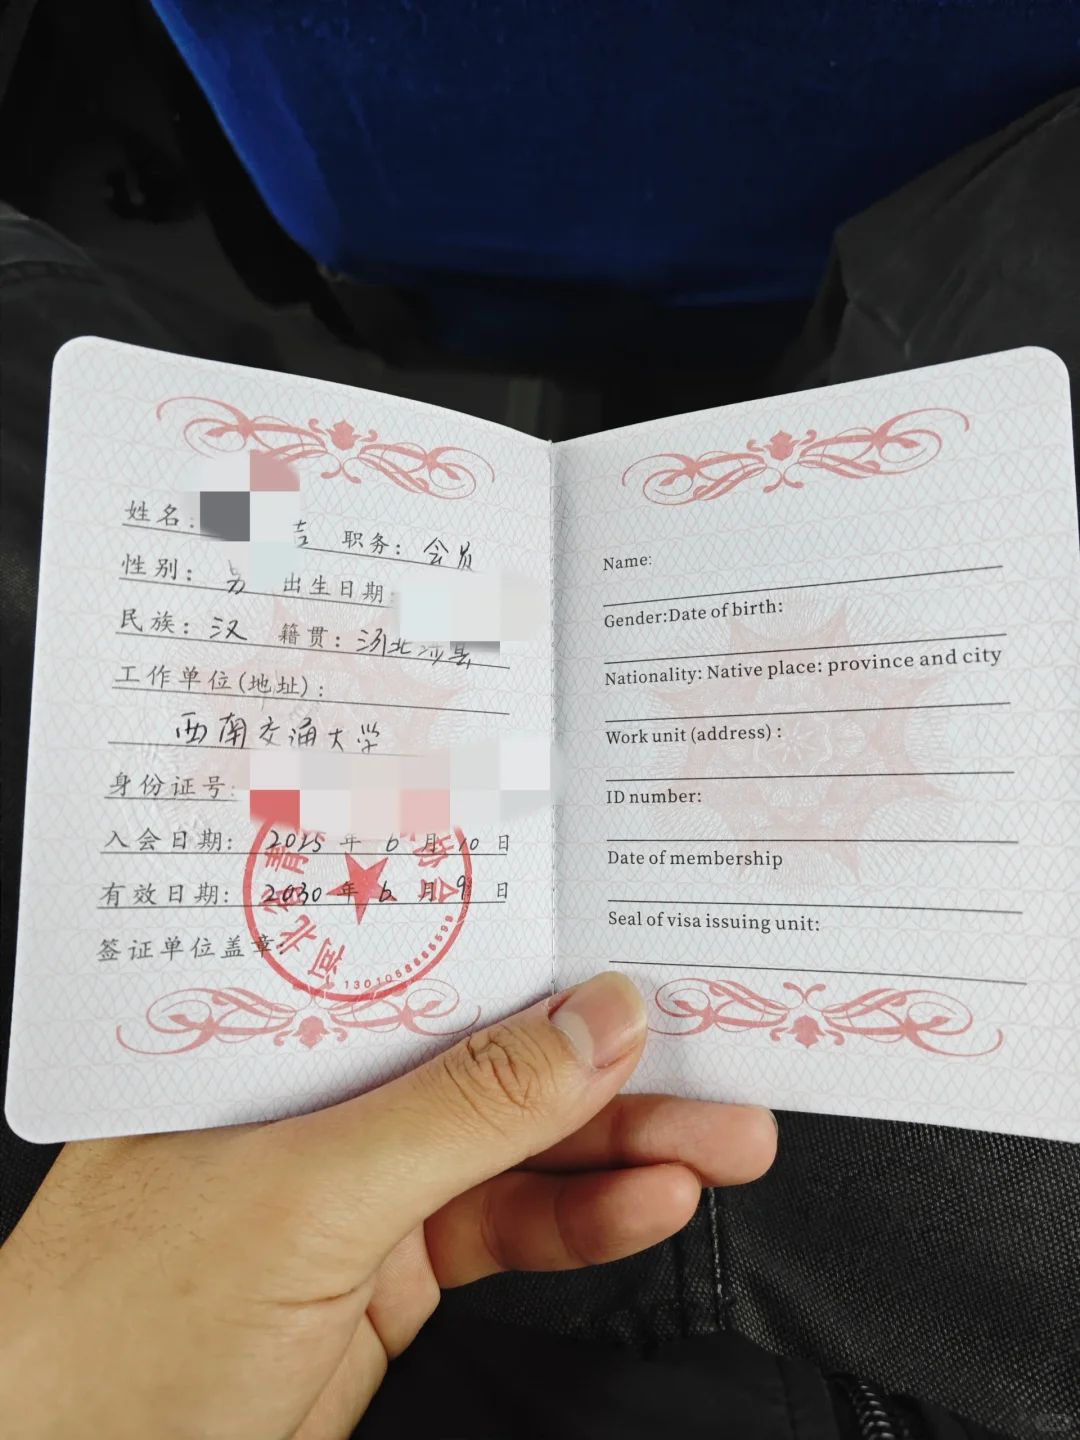 姓名: 吉 职务: 会员
性别: 男 出生日期:
民族: 汉 籍贯: 河北涉县
工作单位(地址):
西南交通大学
身份证号:
入会日期: 2025 年 6 月 10 日
有效日期: 2030 年 6 月 9 日
签证单位盖章:
河北省青 协会
Name:
Gender:Date of birth:
Nationality: Native place: province and city
Work unit (address) :
ID number:
Date of membership
Seal of visa issuing unit: